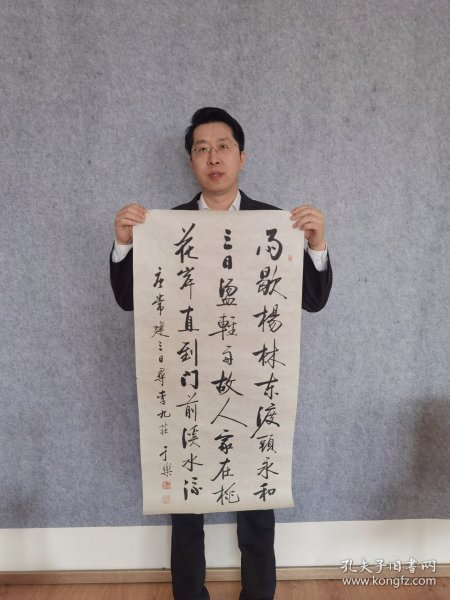 雨歇楊林东渡頭永和
三日盪輕舟故人家在桃
花岸直到门前溪水流
唐常建三日尋李九莊 于樂
孔夫子旧书网
www.kongfz.com